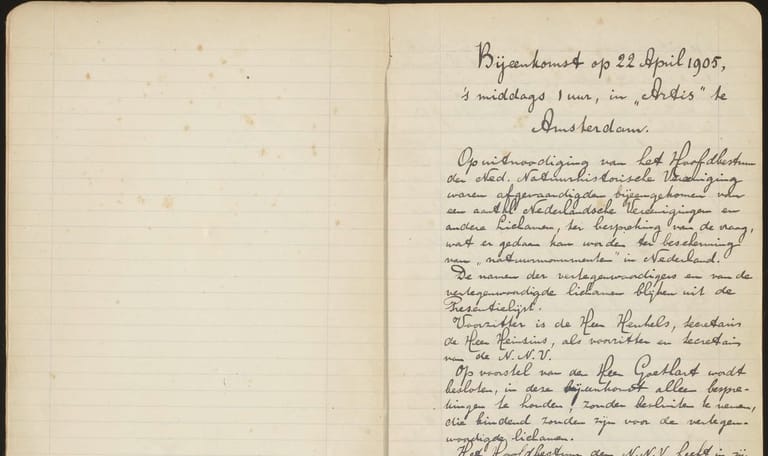 Bijeenkomst op 22 April 1905,
's middags 1 uur, in „Artis" te
Amsterdam.
Op uitnoodiging van het Hoofdbestuur
der Ned. Natuurhistorische Vereeniging
waren afgevaardigden bijeengekomen van
een aantal Nederlandsche Vereenigingen en
andere lichamen, ter bespreking van de vraag,
wat er gedaan kan worden ter bescherming
van „natuurmonumenten" in Nederland.
De namen der vertegenwoordigers en van de
vertegenwoordigde lichamen blijken uit de
Presentielijst.
Voorzitter is de Heer Heukels, secretaris
de Heer Heinsius, als voorzitter en secretaris
van de N.N.V.
Op voorstel van den Heer Goethart wordt
besloten, in deze bijeenkomst alleen bespre-
kingen te houden, zonder besluiten te nemen,
die bindend zouden zijn voor de vertegen-
woordigde lichamen.
Het Hoofdbestuur der N.N.V. heeft in